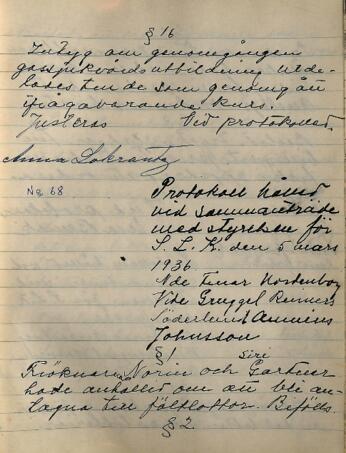 § 16
Intyg om genomgången
gassjukvårdsutbildning utde-
lades till de som genomgått
ifrågavarande kurs.
Justeras Vid protokollet.
Anna Lokrantz
No 68
Protokoll hållet
vid sammanträde
med styrelsen för
S. L. K. den 5 mars
1936.
Nde Fruar Nordenborg
Vide Gruggel Renners
Söderlund
Johnsson
§ 1. Siri
Fröknarna Norin och Gartner
hade anhållit om att bli an-
tagna till fältlottor. Bifölls.
§ 2